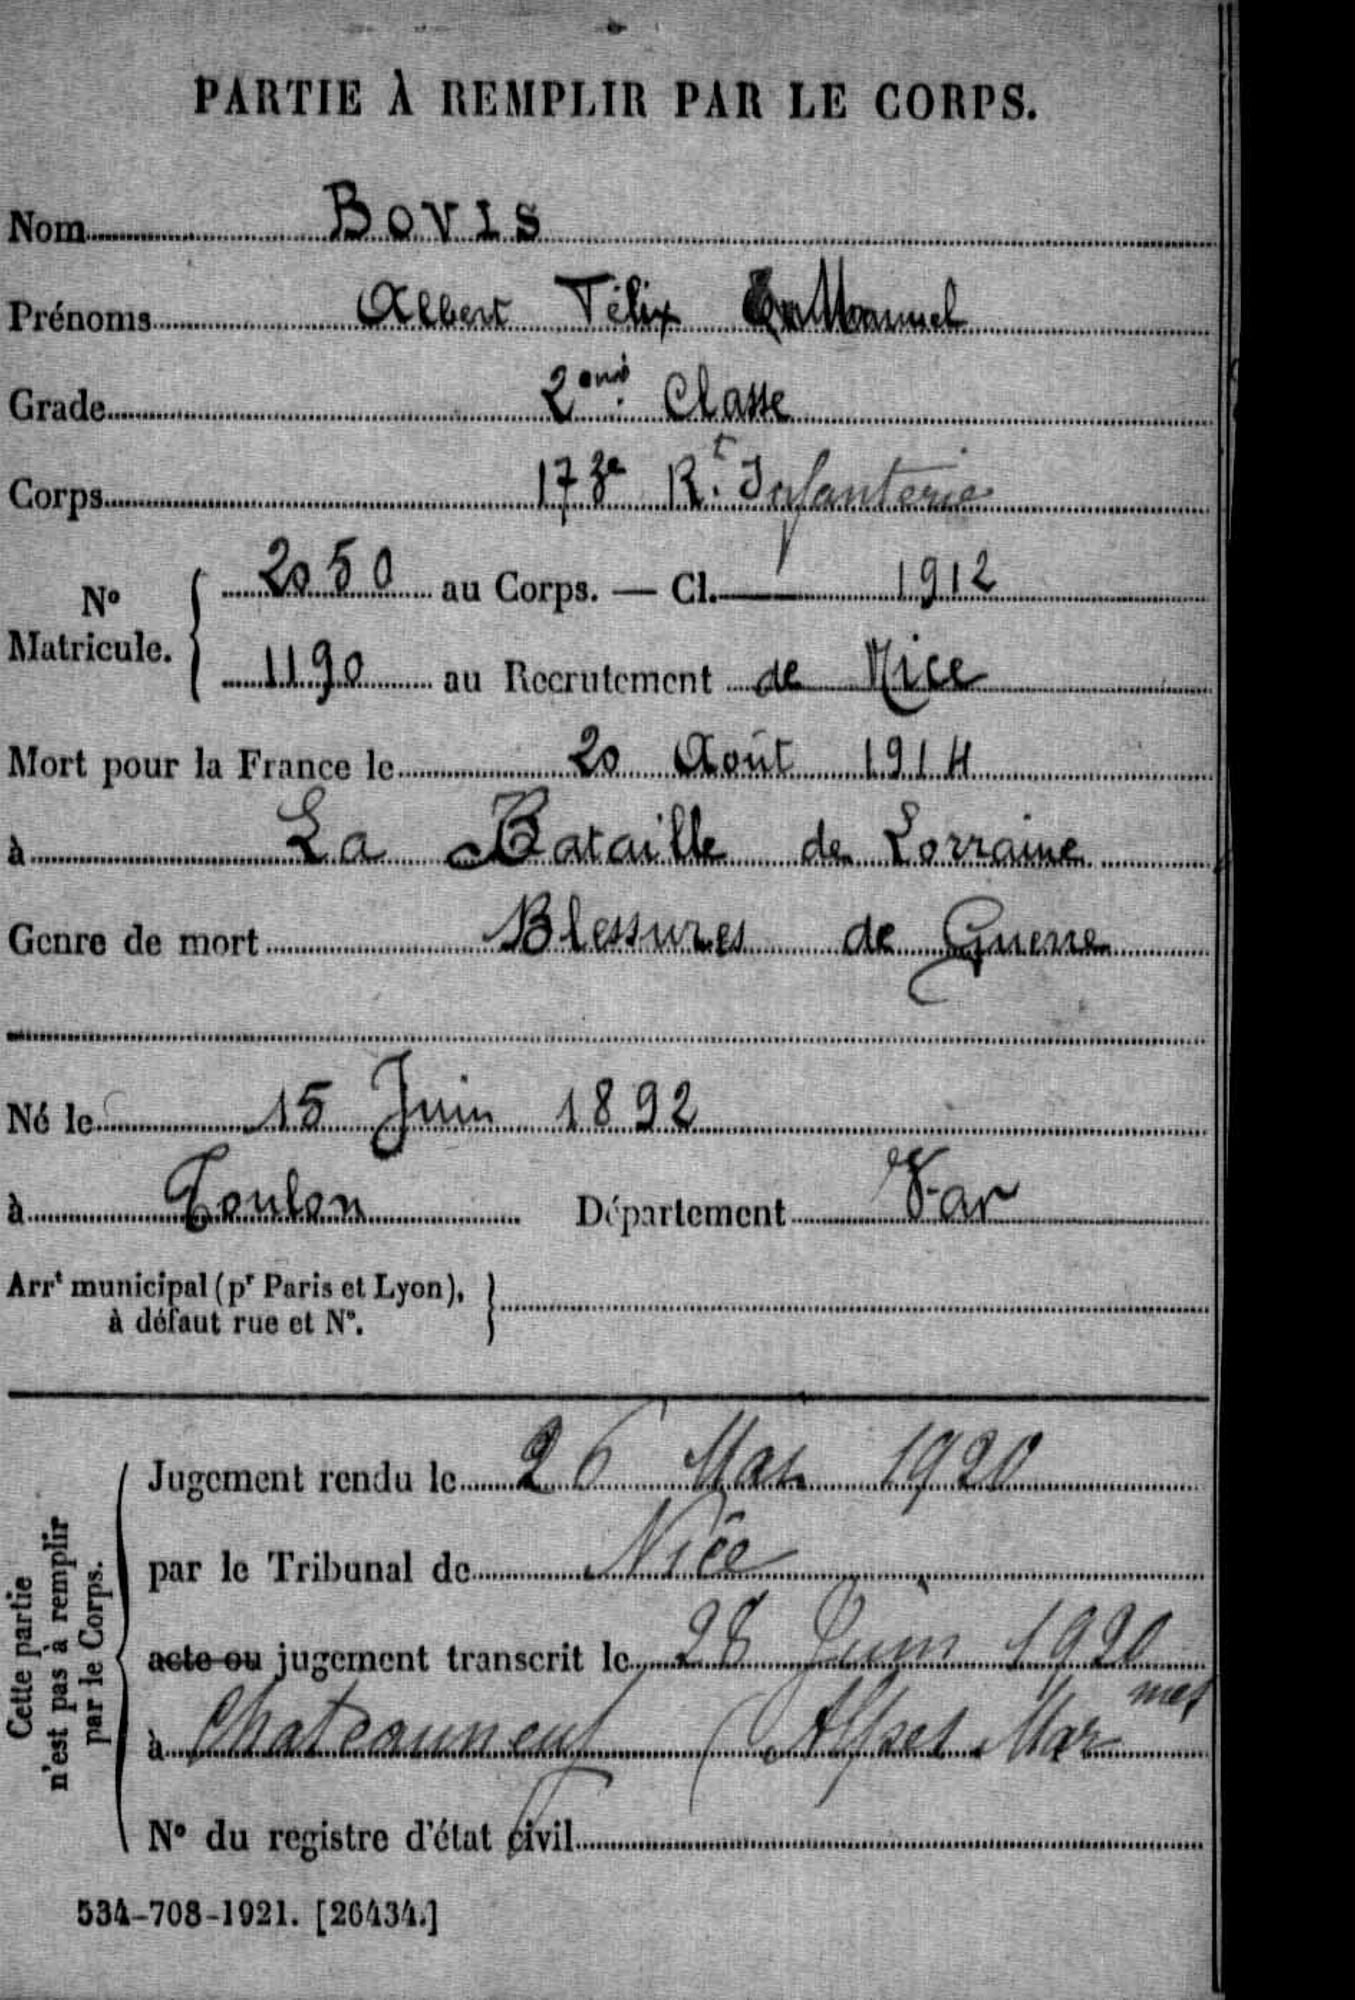 PARTIE À REMPLIR PAR LE CORPS.
Nom BOVIS
Prénoms Albert Félix Emmanuel
Grade 2eme Classe
Corps 173e Rt. Infanterie
No Matricule. { 2050 au Corps. — Cl. 1912
1190 au Recrutement de Nice
Mort pour la France le 20 Août 1914
à La Bataille de Lorraine
Genre de mort Blessures de Guerre
Né le 15 Juin 1892
à Toulon Département Var
Arrt municipal (pr Paris et Lyon), }
à défaut rue et No.
Cette partie
n'est pas à remplir
par le Corps.
Jugement rendu le 26 Mai 1920
par le Tribunal de Nice
acte ou jugement transcrit le 28 Juin 1920
à Chateauneuf (Alpes Marmes
No du registre d'état civil
534-708-1921. [26434.]